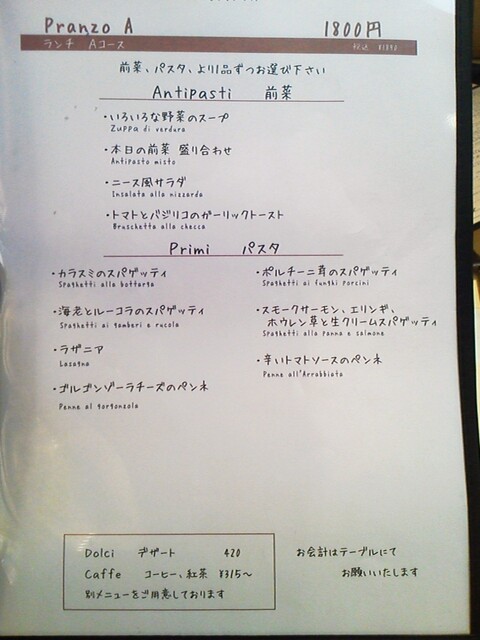 Pranzo A 1800円
ランチ Aコース
前菜、パスタ、より1品ずつお選び下さい
Antipasti 前菜
・いろいろな野菜のスープ
Zuppa di verdura
・本日の前菜 盛り合わせ
Antipasto misto
・ニース風サラダ
Insalata alla nizzarda
・トマトとバジリコのガーリックトースト
Bruschetta alla checca
Primi パスタ
・カラスミのスパゲッティ
Spaghetti alla bottarga
・海老とルーコラのスパゲッティ
Spaghetti ai gamberi e rucola
・ラザニア
Lasagna
・ゴルゴンゾーラチーズのペンネ
Penne al gorgonzola
・ポルチーニ茸のスパゲッティ
Spaghetti ai funghi porcini
・スモークサーモン、エリンギ、
ホウレン草と生クリームスパゲッティ
Spaghetti alla panna e salmone
・辛いトマトソースのペンネ
Penne all'Arrabbiata
Dolci デザート 420
Caffe コーヒー、紅茶 ¥315～
別メニューをご用意しております
お会計はテーブルにて
お願いいたします